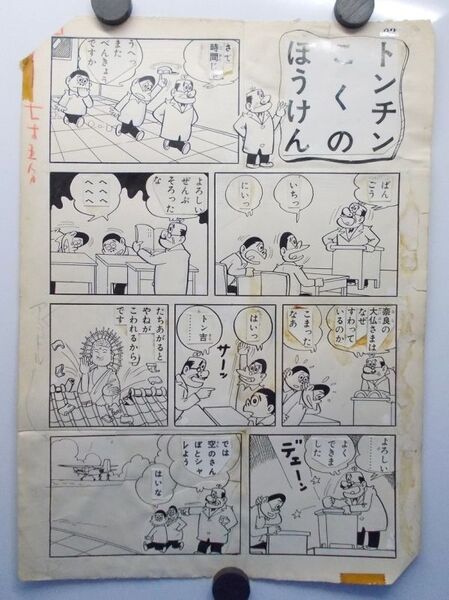 トンチン
こくの
ほうけん
さて
時間じゃ
うへっ
また
べんきょう
ですか
ばん
ごう
いちっ
にいっ
よろしい
ぜんぶ
そろった
な
奈良の
大仏さまは
なぜ
すわって
いるのか
こまった
なあ
はいっ
トン吉
………
サーッ
たちあがると
やねが
こわれるから
です
よろしい
………
よく
できま
した
デェーン
では
空のさん
ぽとシャ
レよう
はいな